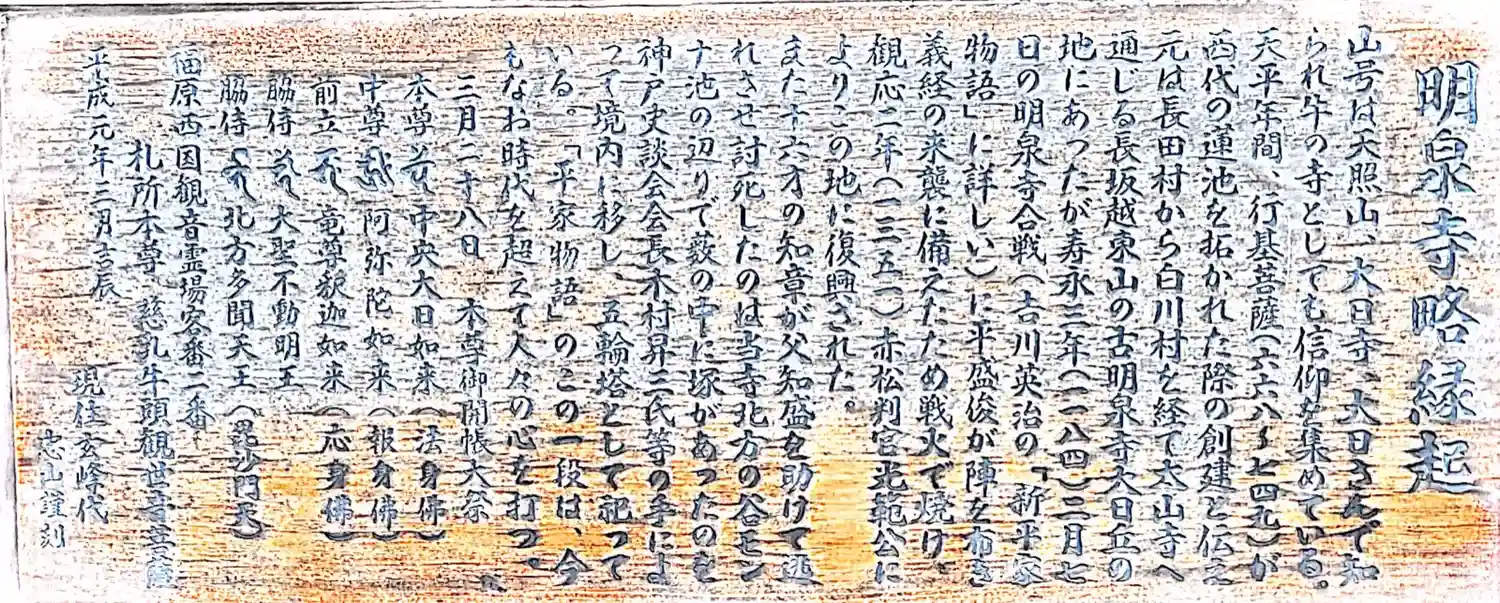 明泉寺略縁起
山号は天照山、大日寺、大日さんで知
られ牛の寺としても信仰を集めている。
天平年間、行基菩薩(六六八〜七四九)が
西代の蓮池を拓かれた際の創建と伝え
元は長田村から白川村を経て太山寺へ
通じる長坂越東山の古明泉寺大日丘の
地にあったが寿永三年(一一八四)二月七
日の明泉寺合戦(吉川英治の、「新平家
物語」に詳しい)に平盛俊が陣を布き
義経の来襲に備えたため戦火で焼け、
観応二年(一三五一)赤松判官光範公に
よりこの地に復興された。
また十六才の知章が父知盛を助けて逃
れさせ討死したのは当寺北方の谷モン
ナ池の辺りで薮の中に塚があったのを
神戸史談会会長木村昇三氏等の手によ
って境内に移し、五輪塔として祀って
いる。「平家物語」のこの一段は、今
もなお時代を超えて人々の心を打つ。
三月二十八日 本尊御開帳大祭
本尊 中央大日如来(法身佛)
中尊 阿弥陀如来(報身佛)
前立 竜尊釈迦如来(応身佛)
脇侍 大聖不動明王
脇侍 北方多聞天王(毘沙門天)
福原西国観音霊場客番二番
札所本尊 慈乳牛頭観世音菩薩
平成元年三月吉辰
現住玄峰代
忠山謹刻